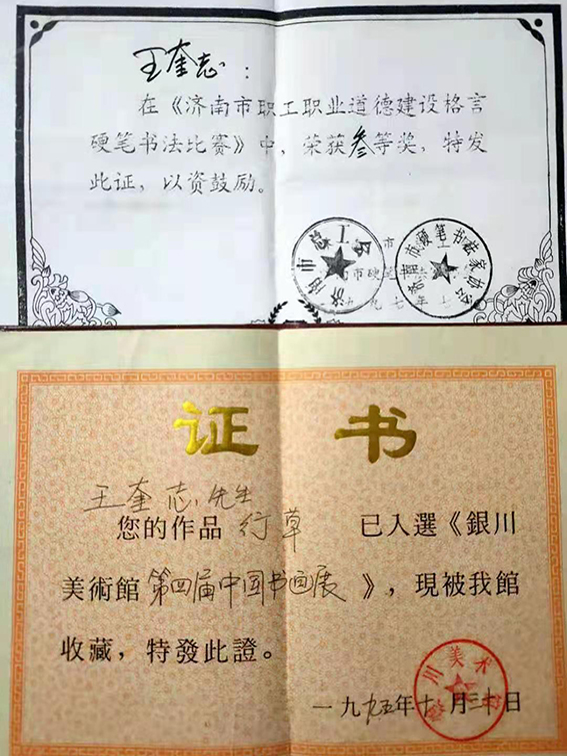 王奎志：
在《济南市职工职业道德建设格言
硬笔书法比赛》中，荣获叁等奖，特发
此证，以资鼓励。
济南市总工会
济南市硬笔书法家协会
证书
王奎志先生
您的作品 行草 已入選《銀川
美術館 第四届中国书画展 》，現被我館
收藏，特發此證。
银川美术馆
一九九五年十 月三十日